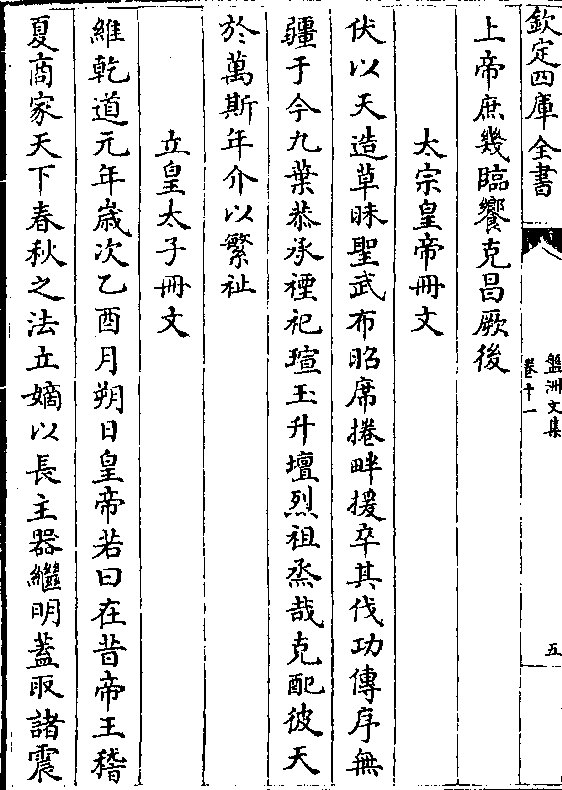 欽定四庫全書
盤洲文集
卷十一
五
上帝庶幾臨饗克昌厥後
太宗皇帝冊文
伏以天造草昧聖武布昭席捲畔援卒其伐功傳序無
疆于今九葉恭承禋祀瑄玉升壇烈祖烝哉克配彼天
於萬斯年介以繁祉
立皇太子冊文
維乾道元年歳次乙酉月朔日皇帝若曰在昔帝王稽
夏商家天下春秋之法立嫡以長主器繼明蓋取諸震